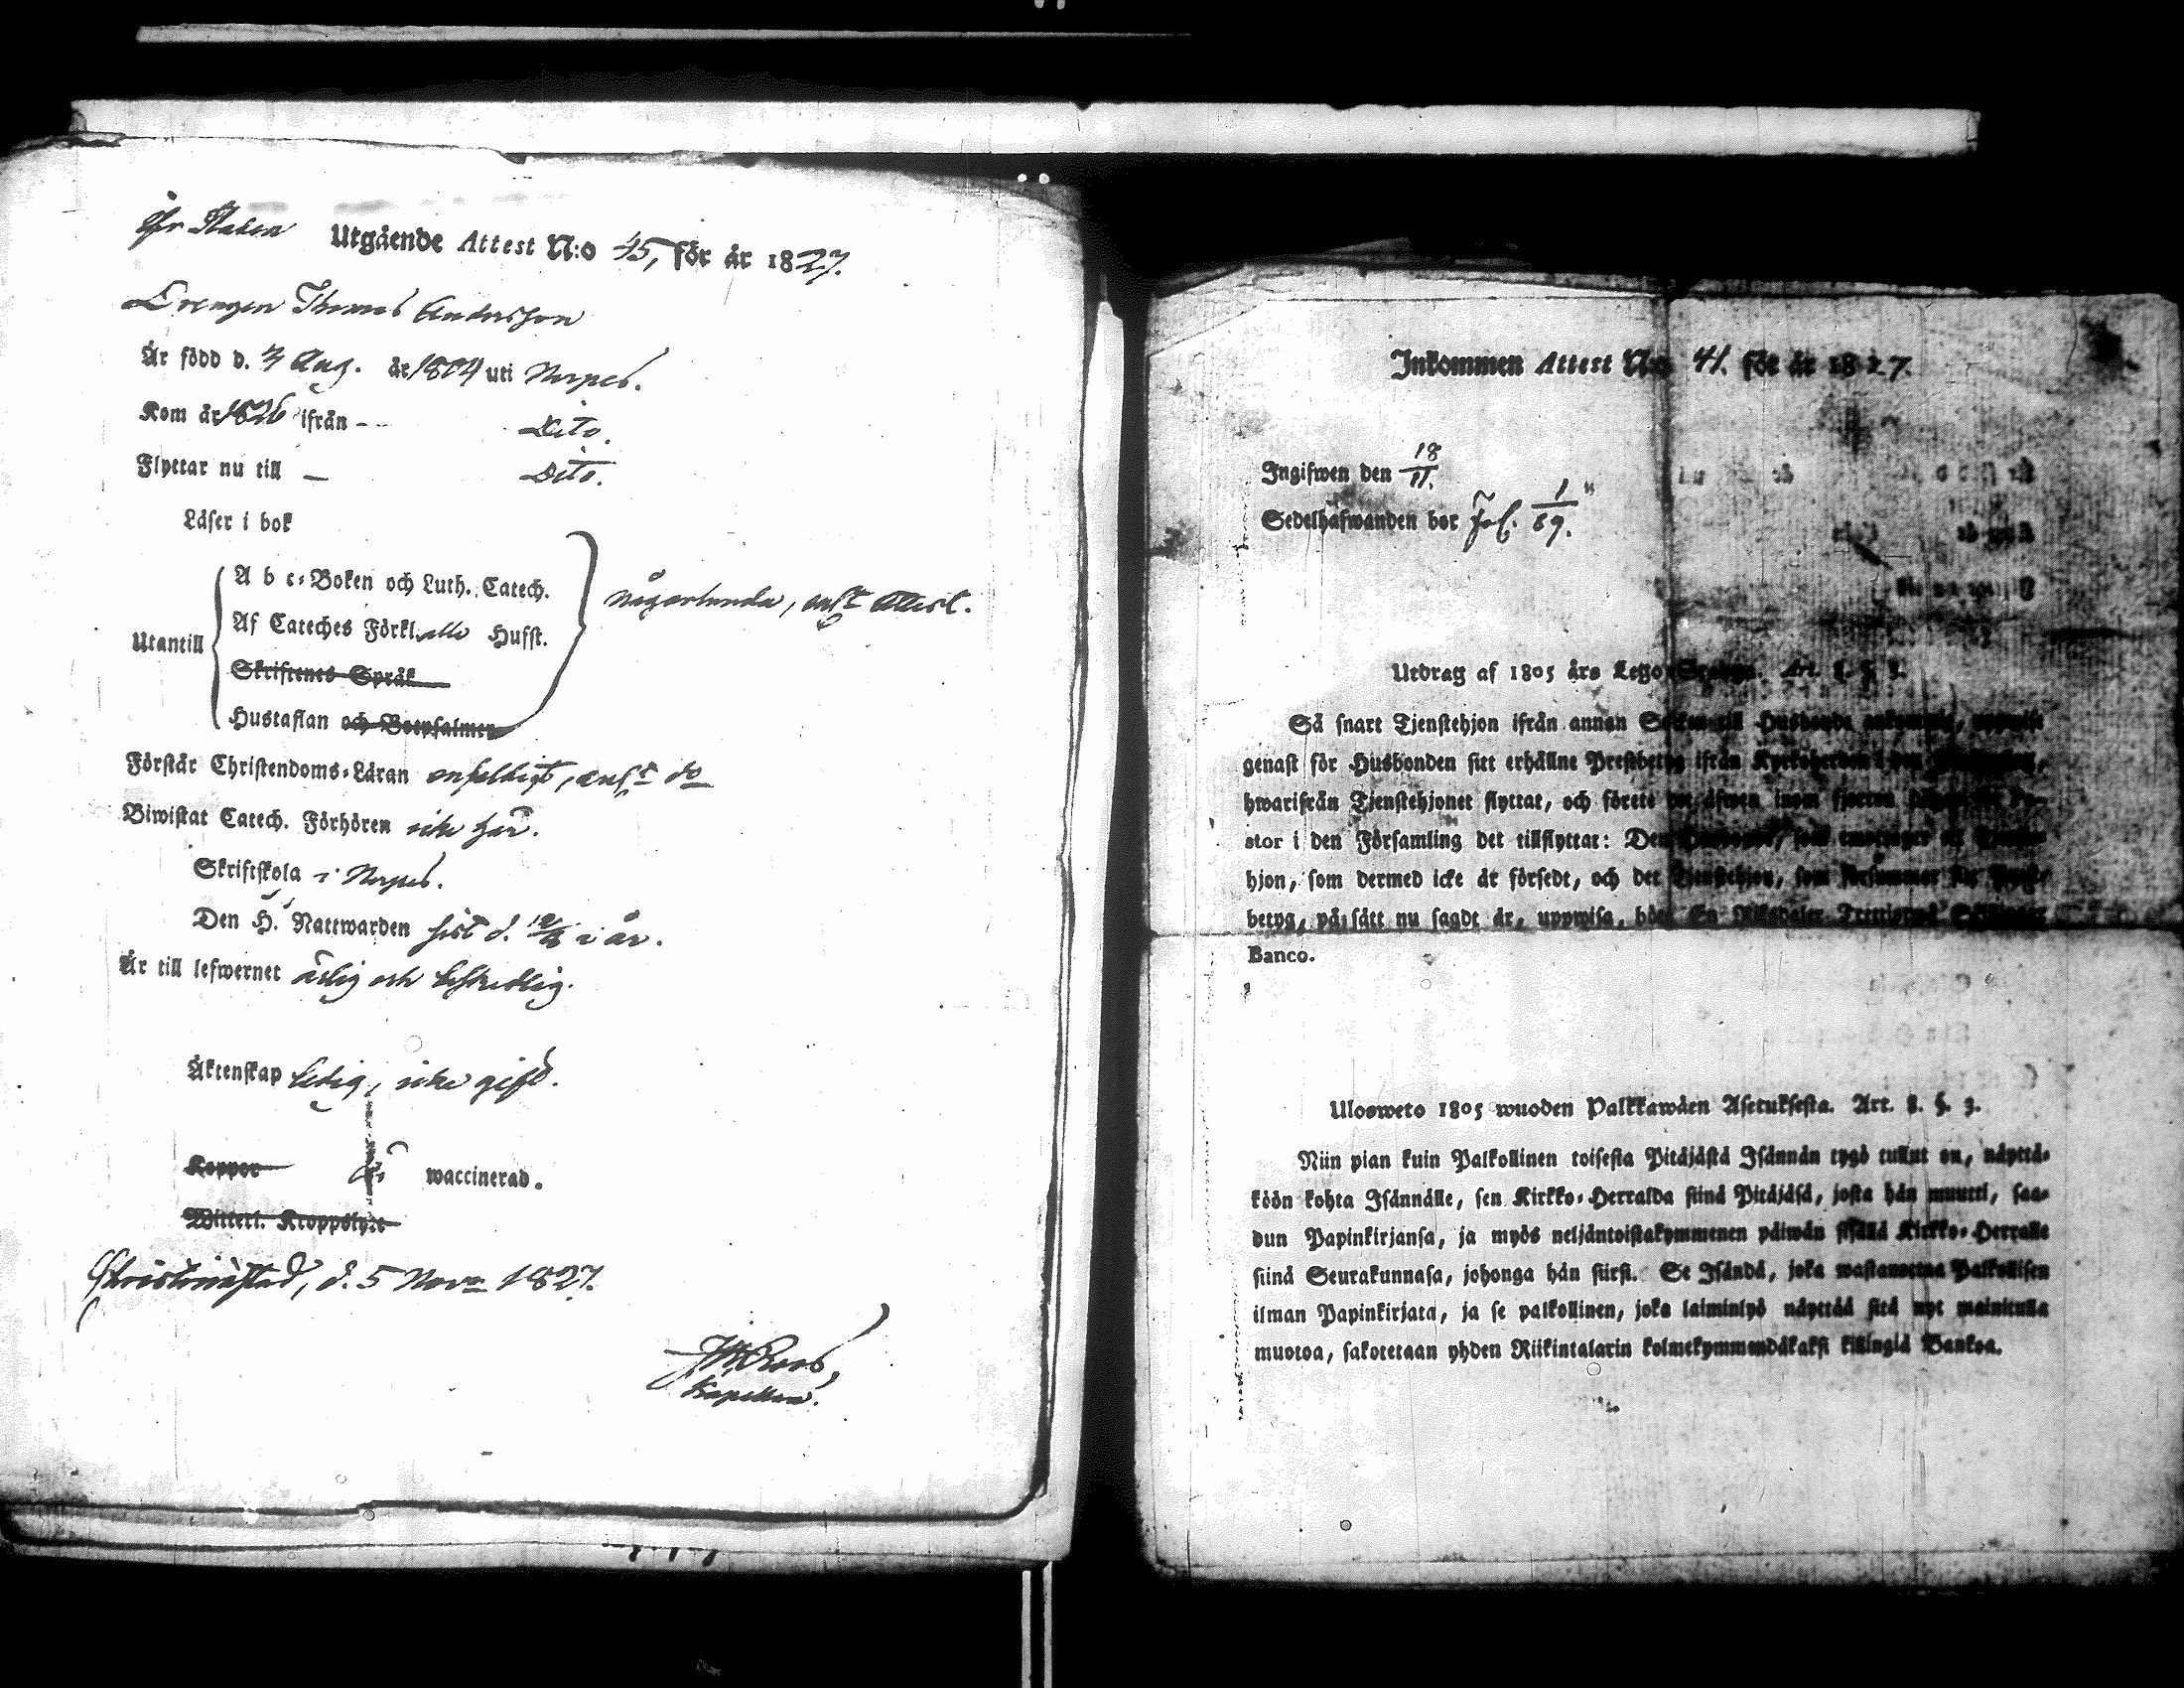 för Staden Utgående Attest N:o 45, för år 1827.
Drengen Thomas Andersson
Är född d. 3 Aug. år 1804 uti Nerpes.
Kom år 1826 ifrån - - Dito.
Flyttar nu till — Dito.
Läser i bok
A b c-Boken och Luth. Catech.
någorlunda, enl:t Attest.
Af Cateches Förkl. Husst.
Utantill
Skriftenes Språk
Hustaflan och Botpsalmen
Förstår Christendoms-Läran enfaldigt, enl:t d:o
Biwistat Catech. Förhören icke här.
Skriftskola i Nerpes.
Den H. Nattwarden sist d. i år.
Är till lefwernet ärlig och beskedlig.
Äktenskap ledig, icke gift.
Koppor waccinerad.
Witterl. Kroppslyte
Christinæstad, d. 5 Nov. 1827.
Roos,
Kapellan.
Inkommen Attest N:o 41. för år 1827.
Ingifwen den 18/11.
Sedelhafwanden bor Fol. 1/89.
Utdrag af 1805 års Lego-Stadga. Art. 8. §. 3.
Så snart Tjenstehjon ifrån annan Socken till Husbonde ankommit, uppwise
genast för Husbonden sitt erhållne Prestbetyg ifrån Kyrkoherden i den
hwarifrån Tjenstehjonet flyttat, och förete det äfwen inom fjorton dagar för Pa-
stor i den Församling det tillflyttat: Den Husbonde, som emottager ett Tjenste-
hjon, som dermed icke är försedt, och det Tjenstehjon, som försummar sitt Prest-
betyg, på sätt nu sagdt är, uppwisa, böte En Riksdaler Trettiotwå Skillingar
Banco.
Uloswето 1805 wuoden Palkkawäen Asetuksesta. Art. 8. §. 3.
Niin pian kuin Palkollinen toisesta Pitäjästä Isännän tygö tullut on, näyttä-
köön kohta Isännälle, sen Kirkko-Herralda siinä Pitäjäsä, josta hän muutti, saa-
dun Papinkirjansa, ja myös neljäntoistakymmenen päiwän sisällä Kirkko-Herralle
siinä Seurakunnasa, johonga hän siirsi. Se Isändä, joka wastanottaa Palkollisen
ilman Papinkirjata, ja se palkollinen, joka laiminlyö näyttää sitä nyt mainitulla
muotoa, sakotetaan yhden Riikintalarin kolmekymmendäkaksi killingiä Bankoa.